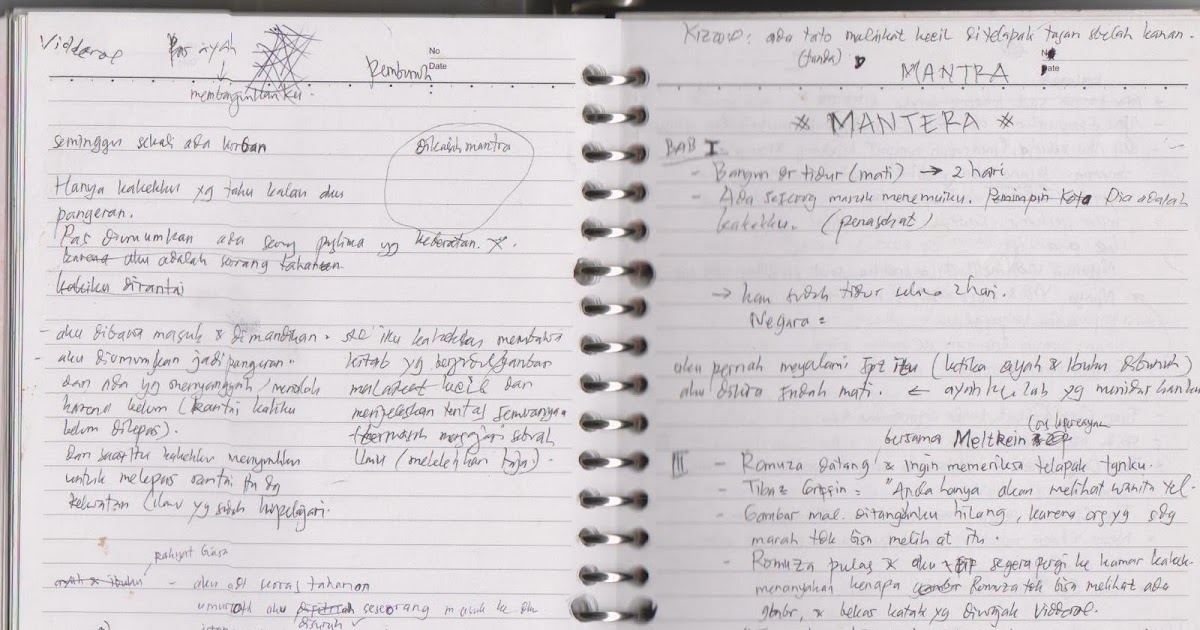 Vidderal
Pas ayah
membangunkanku.
Pembunuh
No
Date
seminggu sekali ada korban
Dikasih mantra
Hanya kakekku yg tahu kalau aku
pangeran.
Pas diumumkan ada seorg yg keberatan.
karena aku adalah seorang tahanan.
kakiku dirantai
- aku dibawa masuk & dimandikan.
- aku diumumkan jadi pangeran
dan ada yg menyanggah/menolak
karena belum (Rantai kakiku
belum dilepas).
Dan saat itu kakekku menyuruhku
untuk melepas rantai itu dg
kekuatan (ilmu yg sudah kupelajari.
itu kakekku membawa
kitab yg bergambar
malaikat kecil dan
menjelaskan semuanya
mengajari sebuah
ilmu (melelehkan baja).
rakyat biasa
ayah & ibuku - aku adl seorg tahanan
umur aku seseorang masuk ke
disuruh
Kizzore: ada tato malaikat kecil ditelapak tangan sebelah kanan.
(tanda)
MANTRA
No
Date
* MANTERA *
BAB I
- Bangun dr tidur (mati) → 2 hari
- Ada seseorg masuk menemuiku. Pemimpin Kota Dia adalah
kakekku. (penasehat)
→ kau sudah tidur selama 2 hari.
Negara =
aku pernah mengalami spt itu (ketika ayah & Ibuku dibunuh)
aku dikira sudah mati. ← ayahku lah yg menidurkanku
bersama Meltrein
(org kepercayaan
III - Romuza datang & ingin memeriksa telapak tgnku.
- Tibaz Griffin = "Anda hanya akan melihat wanita
- Gambar mal. ditanganku hilang, karena org yg sdg
marah tdk bisa melihat itu.
- Romuza pulas & aku segera pergi ke kamar kakek
menanyakan kenapa Romuza tdk bisa melihat ada
gmbr, & bekas katak yg diinjak Vidderal.